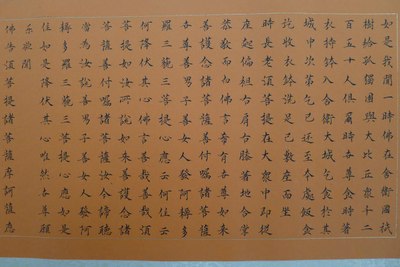 如是我聞一時佛在舍衛國祇
樹給孤獨園與大比丘眾十二
百五十人俱爾時世尊食時著
衣持鉢入舍衛大城乞食於其
城中次第乞已還至本處飯食
訖收衣鉢洗足已敷座而坐
時長老須菩提在大眾中即從
座起偏袒右肩右膝著地合掌
恭敬而白佛言希有世尊如來
善護念諸菩薩善付囑諸菩薩
世尊善男子善女人發阿耨多
羅三藐三菩提心應云何住云
何降伏其心佛言善哉善哉須
菩提如汝所說如來善護念諸
菩薩善付囑諸菩薩汝今諦聽
當為汝說善男子善女人發阿
耨多羅三藐三菩提心應如是
住如是降伏其心唯然世尊願
樂欲聞
佛告須菩提諸菩薩摩訶薩應